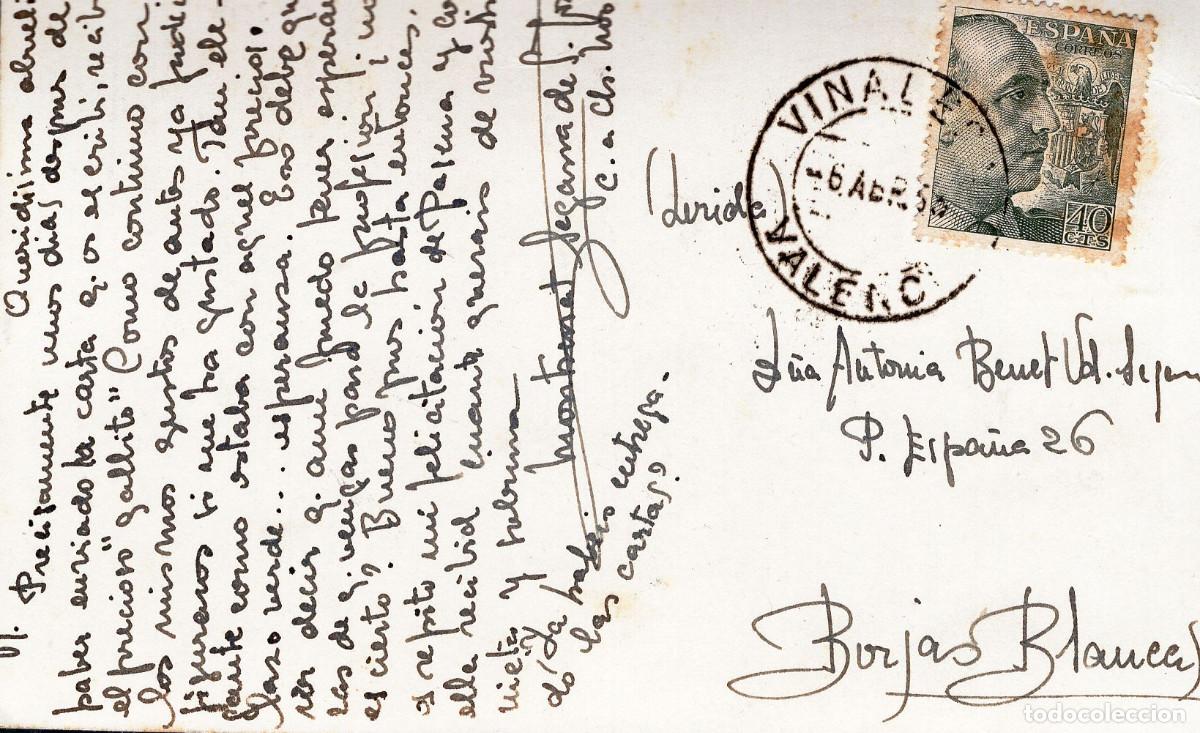 Queridísima abueli
Precisamente unos días despues de
haber enviado la carta q. os escribí, recib
el precioso "gallito" Como continuo con
los mismos gustos de antes ya puedi
figuraros si me ha gustado. Tan ele-
gante como estaba con aquel precios.
lazo verde... esperanza. Eso debe qu
rer decir q. aun puedo tener esperan
zas de q. vengas para la profesion; no
es cierto? Bueno pues hasta entonces.
os repito mi felicitación de Pascua y co
ella recibid cuanto querais de vuestr
nieta y sobrina
Montserrat Segarra de S.
C. a Ch.
La habeis entrega-
do las cartas?
ESPAÑA
CORREOS
40
CTS
VINAL
6 ABR.5
VALENC
Lerida
Dña Antonia Benet Vd. Segarr
P. España 26
Borjas Blancas
todocoleccion